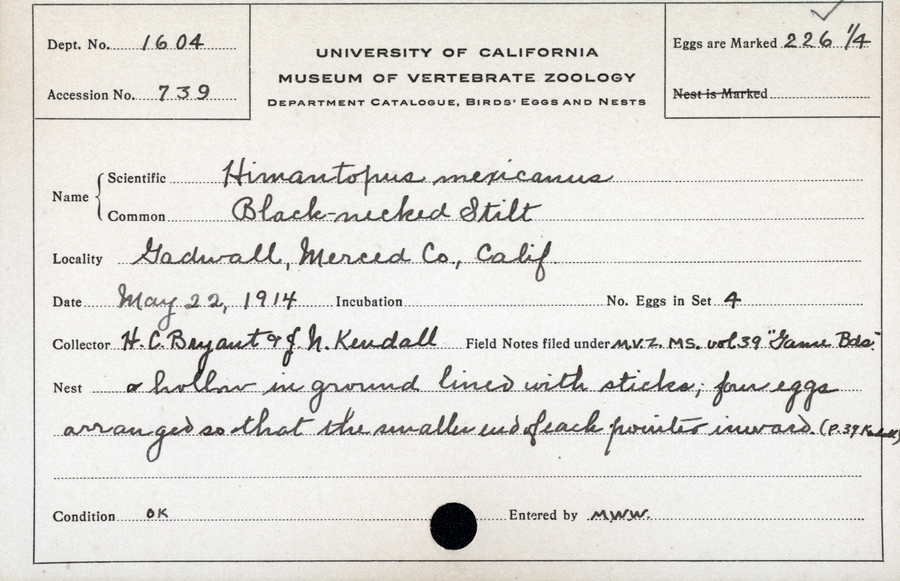 Dept. No. 1604
Accession No. 739
UNIVERSITY OF CALIFORNIA
MUSEUM OF VERTEBRATE ZOOLOGY
DEPARTMENT CATALOGUE, BIRDS' EGGS AND NESTS
Eggs are Marked 226 1/4
Nest is Marked
Name
Scientific Himantopus mexicanus
Common Black-necked Stilt
Locality Gadwall, Merced Co., Calif
Date May 22, 1914 Incubation No. Eggs in Set 4
Collector H. C. Bryant & J. N. Kendall Field Notes filed under M.V.Z. MS. vol 39 "Game Bds."
Nest a hollow in ground lined with sticks; four eggs
arranged so that the smaller end of each pointed inward. (p. 39 Kendall)
Condition OK Entered by MWW.